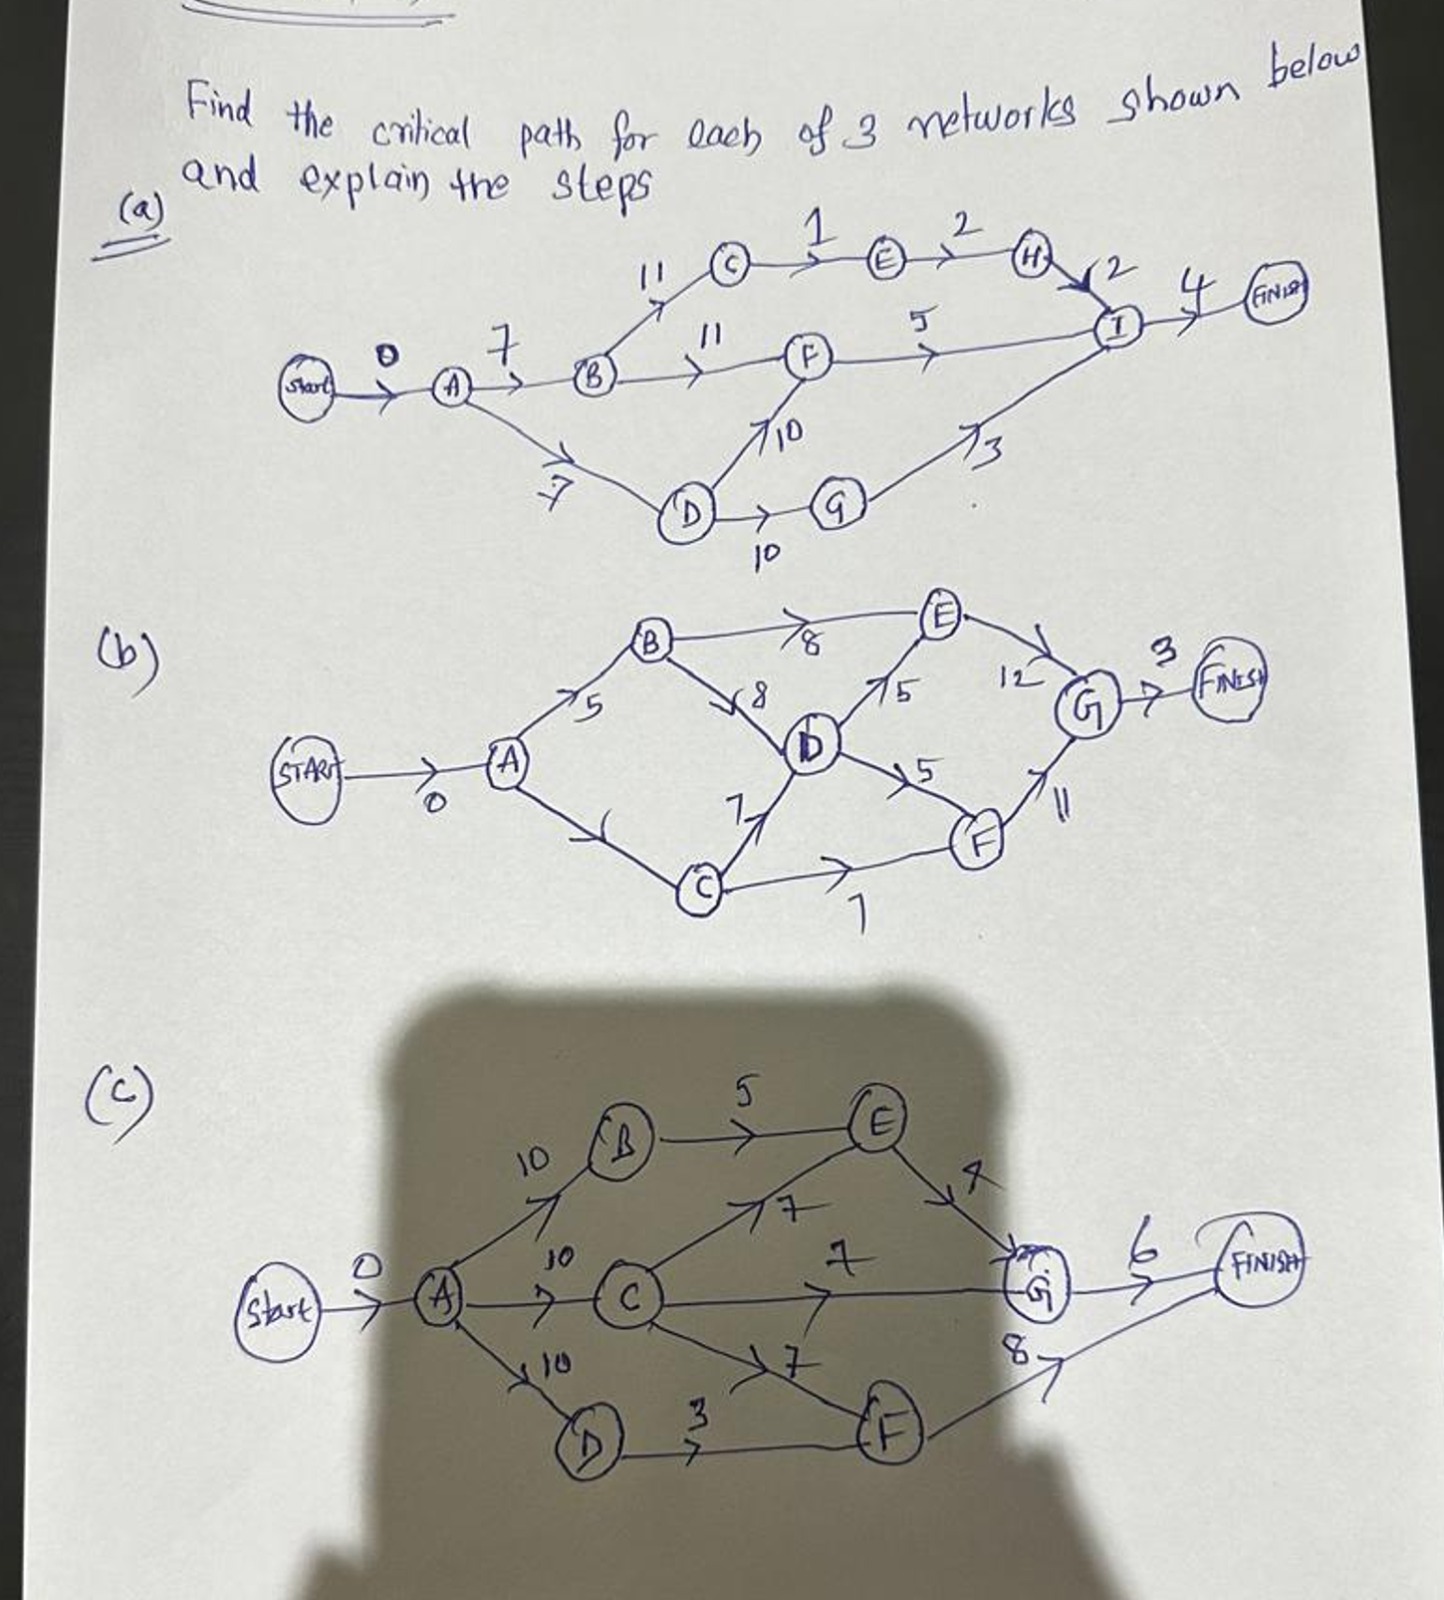 Find the critical path for each of 3 networks shown below
and explain the steps
(a)
1
2
C
E
H
11
2
4
FINISH
5
I
0
7
11
F
Start
A
B
10
3
7
D
G
10
(b)
B
8
E
3
FINISH
5
8
12
G
5
START
A
D
0
5
7
11
F
C
7
(c)
5
B
E
10
7
10
7
6
FINISH
0
Start
A
C
G
10
7
8
3
D
F